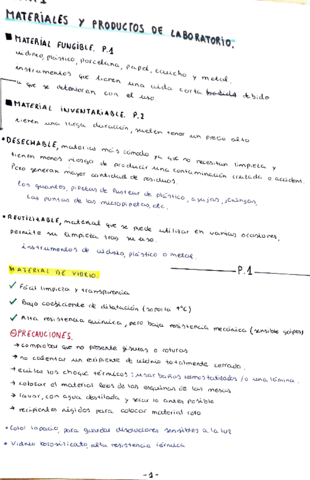 MATERIALES Y PRODUCTOS DE LABORATORIO.
■ MATERIAL FUNGIBLE. P.1
vidrio, plástico, porcelana, papel, caucho y metal.
instrumentos que tienen una vida corta debido
a que se deterioran con el uso.
■ MATERIAL INVENTARIABLE. P.2
tienen una larga duración, suelen tener un precio alto
• DESECHABLE, material más cómodo ya que no necesitan limpieza y
tienen menos riesgo de producir una contaminación cruzada o accident.
Pero generan mayor cantidad de residuos.
los guantes, pipetas de Pasteur de plástico, agujas, jeringas,
las puntas de las micropipetas, etc.
• REUTILIZABLE, material que se puede utilizar en varias ocasiones,
permite su limpieza tras su uso.
instrumentos de vidrio, plástico o metal.
MATERIAL DE VIDRIO. P.1
✓ Fácil limpieza y transparencia
✓ Bajo coeficiente de dilatación (soporta ↑ºC)
✓ Alta resistencia química, pero baja resistencia mecánica (sensible golpes)
PRECAUCIONES.
→ comprobar que no presente fisuras o roturas
→ no calentar un recipiente de vidrio totalmente cerrado.
→ evitar los choques térmicos: usar baños termostatizados y/o una lámina.
→ colocar el material lejos de las esquinas de las mesas
→ lavar, con agua destilada y secar lo antes posible
→ recipientes rígidos para colocar material roto
• Color topacio, para guardar disoluciones sensibles a la luz
• Vidrio borosilicato, alta resistencia térmica
-1-